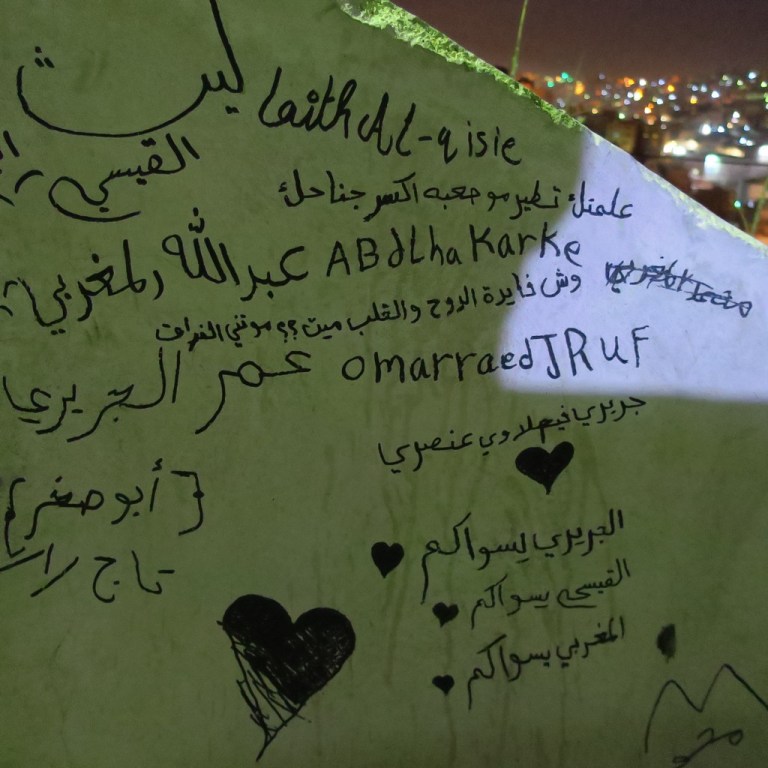 ليث
Laith Al-qisie
القيسي
علمتك تطير مو صعبه اكسر جناحك
عبدالله المغربي ABdLhaKarKe
وش فايدة الروح والقلب ميت ؟؟ موتني الفراق
عمر الجريري omarraedJRUF
جريري فيم لاوي عنصري
{أبو صقر}
تاج راس
الجريري يسواكم
القيسي يسواكم
المغربي يسواكم